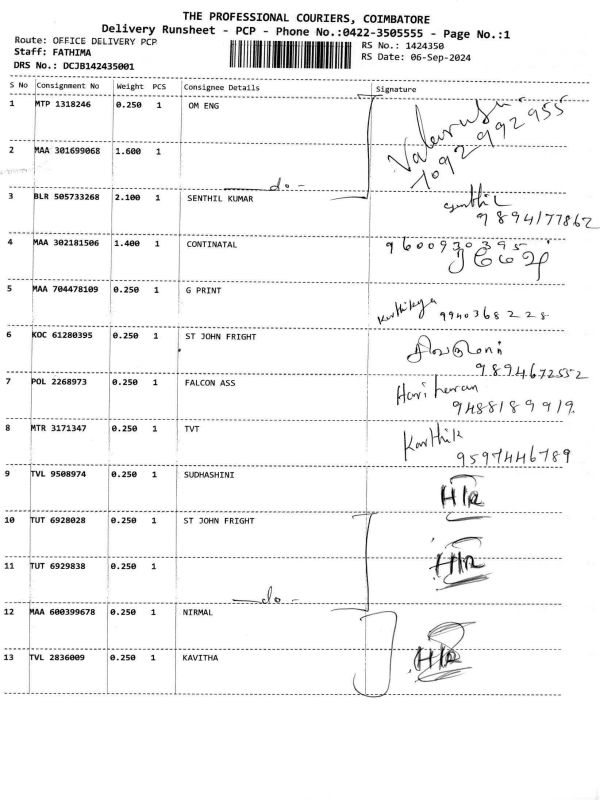 THE PROFESSIONAL COURIERS, COIMBATORE
Delivery Runsheet - PCP - Phone No.:0422-3505555 - Page No.:1
Route: OFFICE DELIVERY PCP
Staff: FATHIMA
DRS No.: DCJB142435001
RS No.: 1424350
RS Date: 06-Sep-2024
S No Consignment No Weight PCS Consignee Details Signature
1 MTP 1318246 0.250 1 OM ENG
2 MAA 301699068 1.600 1
do -
3 BLR 505733268 2.100 1 SENTHIL KUMAR Senthil
9894177862
4 MAA 302181506 1.400 1 CONTINATAL 9600930395
5 MAA 704478109 0.250 1 G PRINT Karthikya 9940368228
6 KOC 61280395 0.250 1 ST JOHN FRIGHT
9894672552
7 POL 2268973 0.250 1 FALCON ASS Hariharan
9488189919
8 MTR 3171347 0.250 1 TVT Karthik
9597446789
9 TVL 9508974 0.250 1 SUDHASHINI
10 TUT 6928028 0.250 1 ST JOHN FRIGHT
11 TUT 6929838 0.250 1
do -
12 MAA 600399678 0.250 1 NIRMAL
13 TVL 2836009 0.250 1 KAVITHA